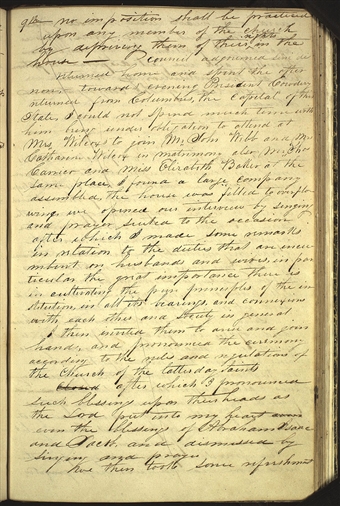 9th no imposition shall be practised
upon any member of the church
by depriving them of their rights in the
house — Council adjourned sine die
returned home and spent the after
noon. towards evening President Cowdery
returned from Columbus, the capital of this
State, I could not spend much time with
him being under obligation to attend at
Mrs. Wilcox to join Mr. John Webb and Mrs
Catharine Wilcox in matrimony also Mr. Thos
Carrico and Miss Elizabeth Baker at the
same place, I found a large company
assembled, the house was filled to overflo
wing, we opened our interview by singing
and prayer suited to the occasion
after which I made some remarks
in relation to the duties that are incu
mbent on husbands and wives, in par
ticular the great importance there is
in cultivating the pure principles of the in
stitution, in all its bearings, and connexions
with each other and Society in general
I then invited them to arise and join
hands, and pronounced the ceremony
according to the rules and regulations of
the Church of the Latter day Saints
after which I pronounced
such blessings upon their heads as
the Lord put into my heart
even the blessings of Abraham Isaac
and Jacob, and dismissed by
singing and prayer
we then took some refreshment